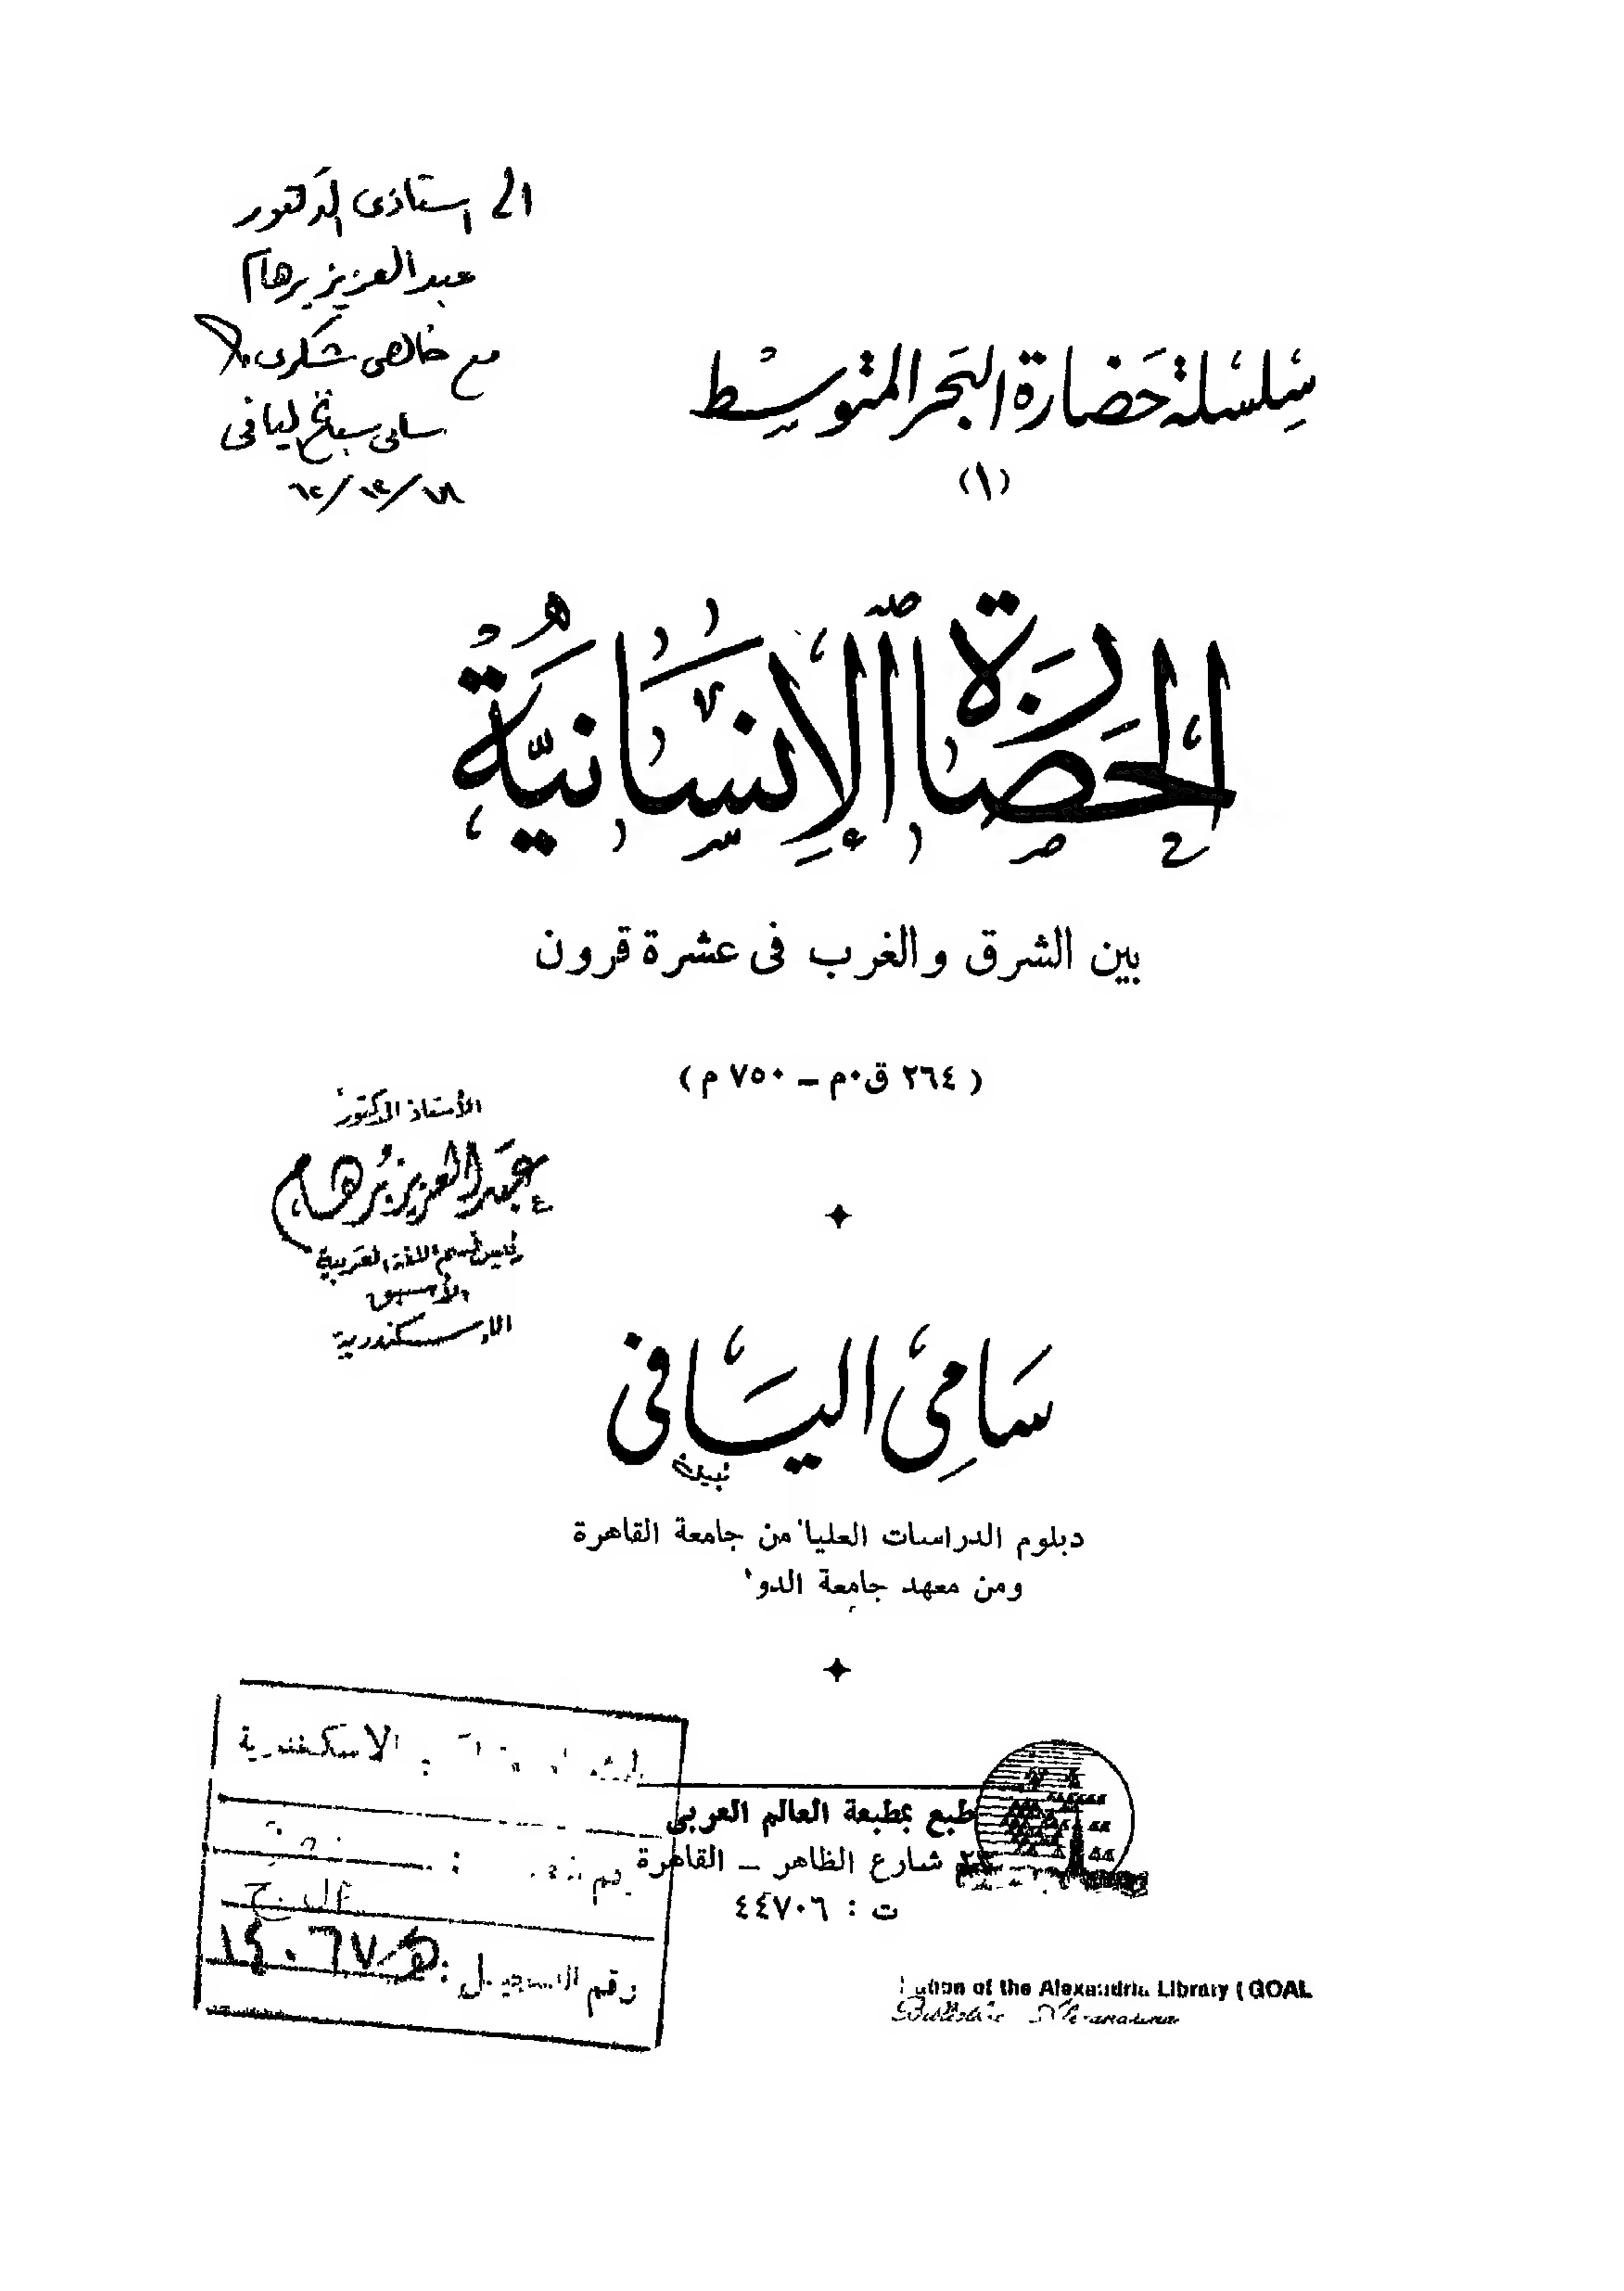 الى استاذى الدكتور
عبد العزيز برهام
مع خالص شكرى
سامى اليافى
سلسلة حضارة البحر المتوسط
(١)
الحضارة الإنسانية
بين الشرق والغرب فى عشرة قرون
( ٢٦٤ ق٠م – ٧٥٠ م )
الأستاذ الدكتور
عبد العزيز برهام
رئيس قسم اللغة العربية
الأسبق
الاسكندرية
سامى اليافى
دبلوم الدراسات العليا من جامعة القاهرة
ومن معهد جامعة الدو
طبع بمطبعة العالم العربى
٢٣ شارع الظاهر – القاهرة
ت : ٤٤٧٠٦
الاسكندرية
رقم التسجيل : ١٤٠٦٧
of the Alexandria Library (GOAL